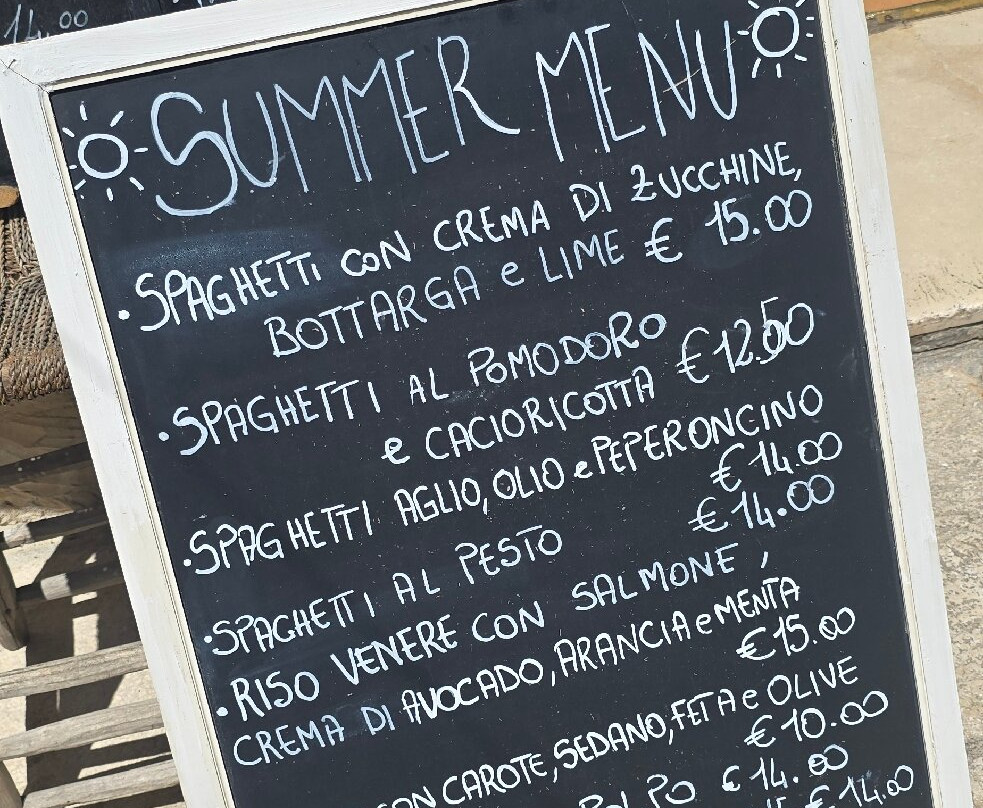 14.00
SUMMER MENU
• SPAGHETTI CON CREMA DI ZUCCHINE,
BOTTARGA e LIME € 15.00
• SPAGHETTI AL POMODORO
e CACIORICOTTA € 12.50
• SPAGHETTI AGLIO, OLIO e PEPERONCINO
€ 14.00
• SPAGHETTI AL PESTO € 14.00
• RISO VENERE CON SALMONE,
CREMA DI AVOCADO, ARANCIA e MENTA
€ 15.00
CON CAROTE, SEDANO, FETA e OLIVE
€ 10.00
POLPO € 14.00
€ 14.00